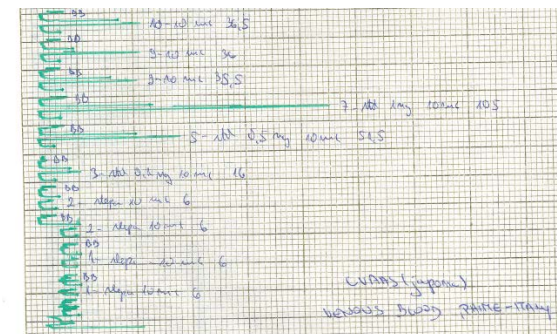 BB
10-10 mc 36,5
BB
9-10 mc 36
BB
9-10 mc 35,5
BB
7- std 1mg 10 mc 105
BB
5- std 0,5 mg 10 mc 51,5
BB
3- std 0,1 mg 10 mc 16
BB
2- slepa 10 mc 6
BB
2- slepa 10 mc 6
BB
1- slepa 10 mc 6
BB
1- slepa 10 mc 6
CVAAS (japonac)
VENOUS BLOOD PHIME-ITALY